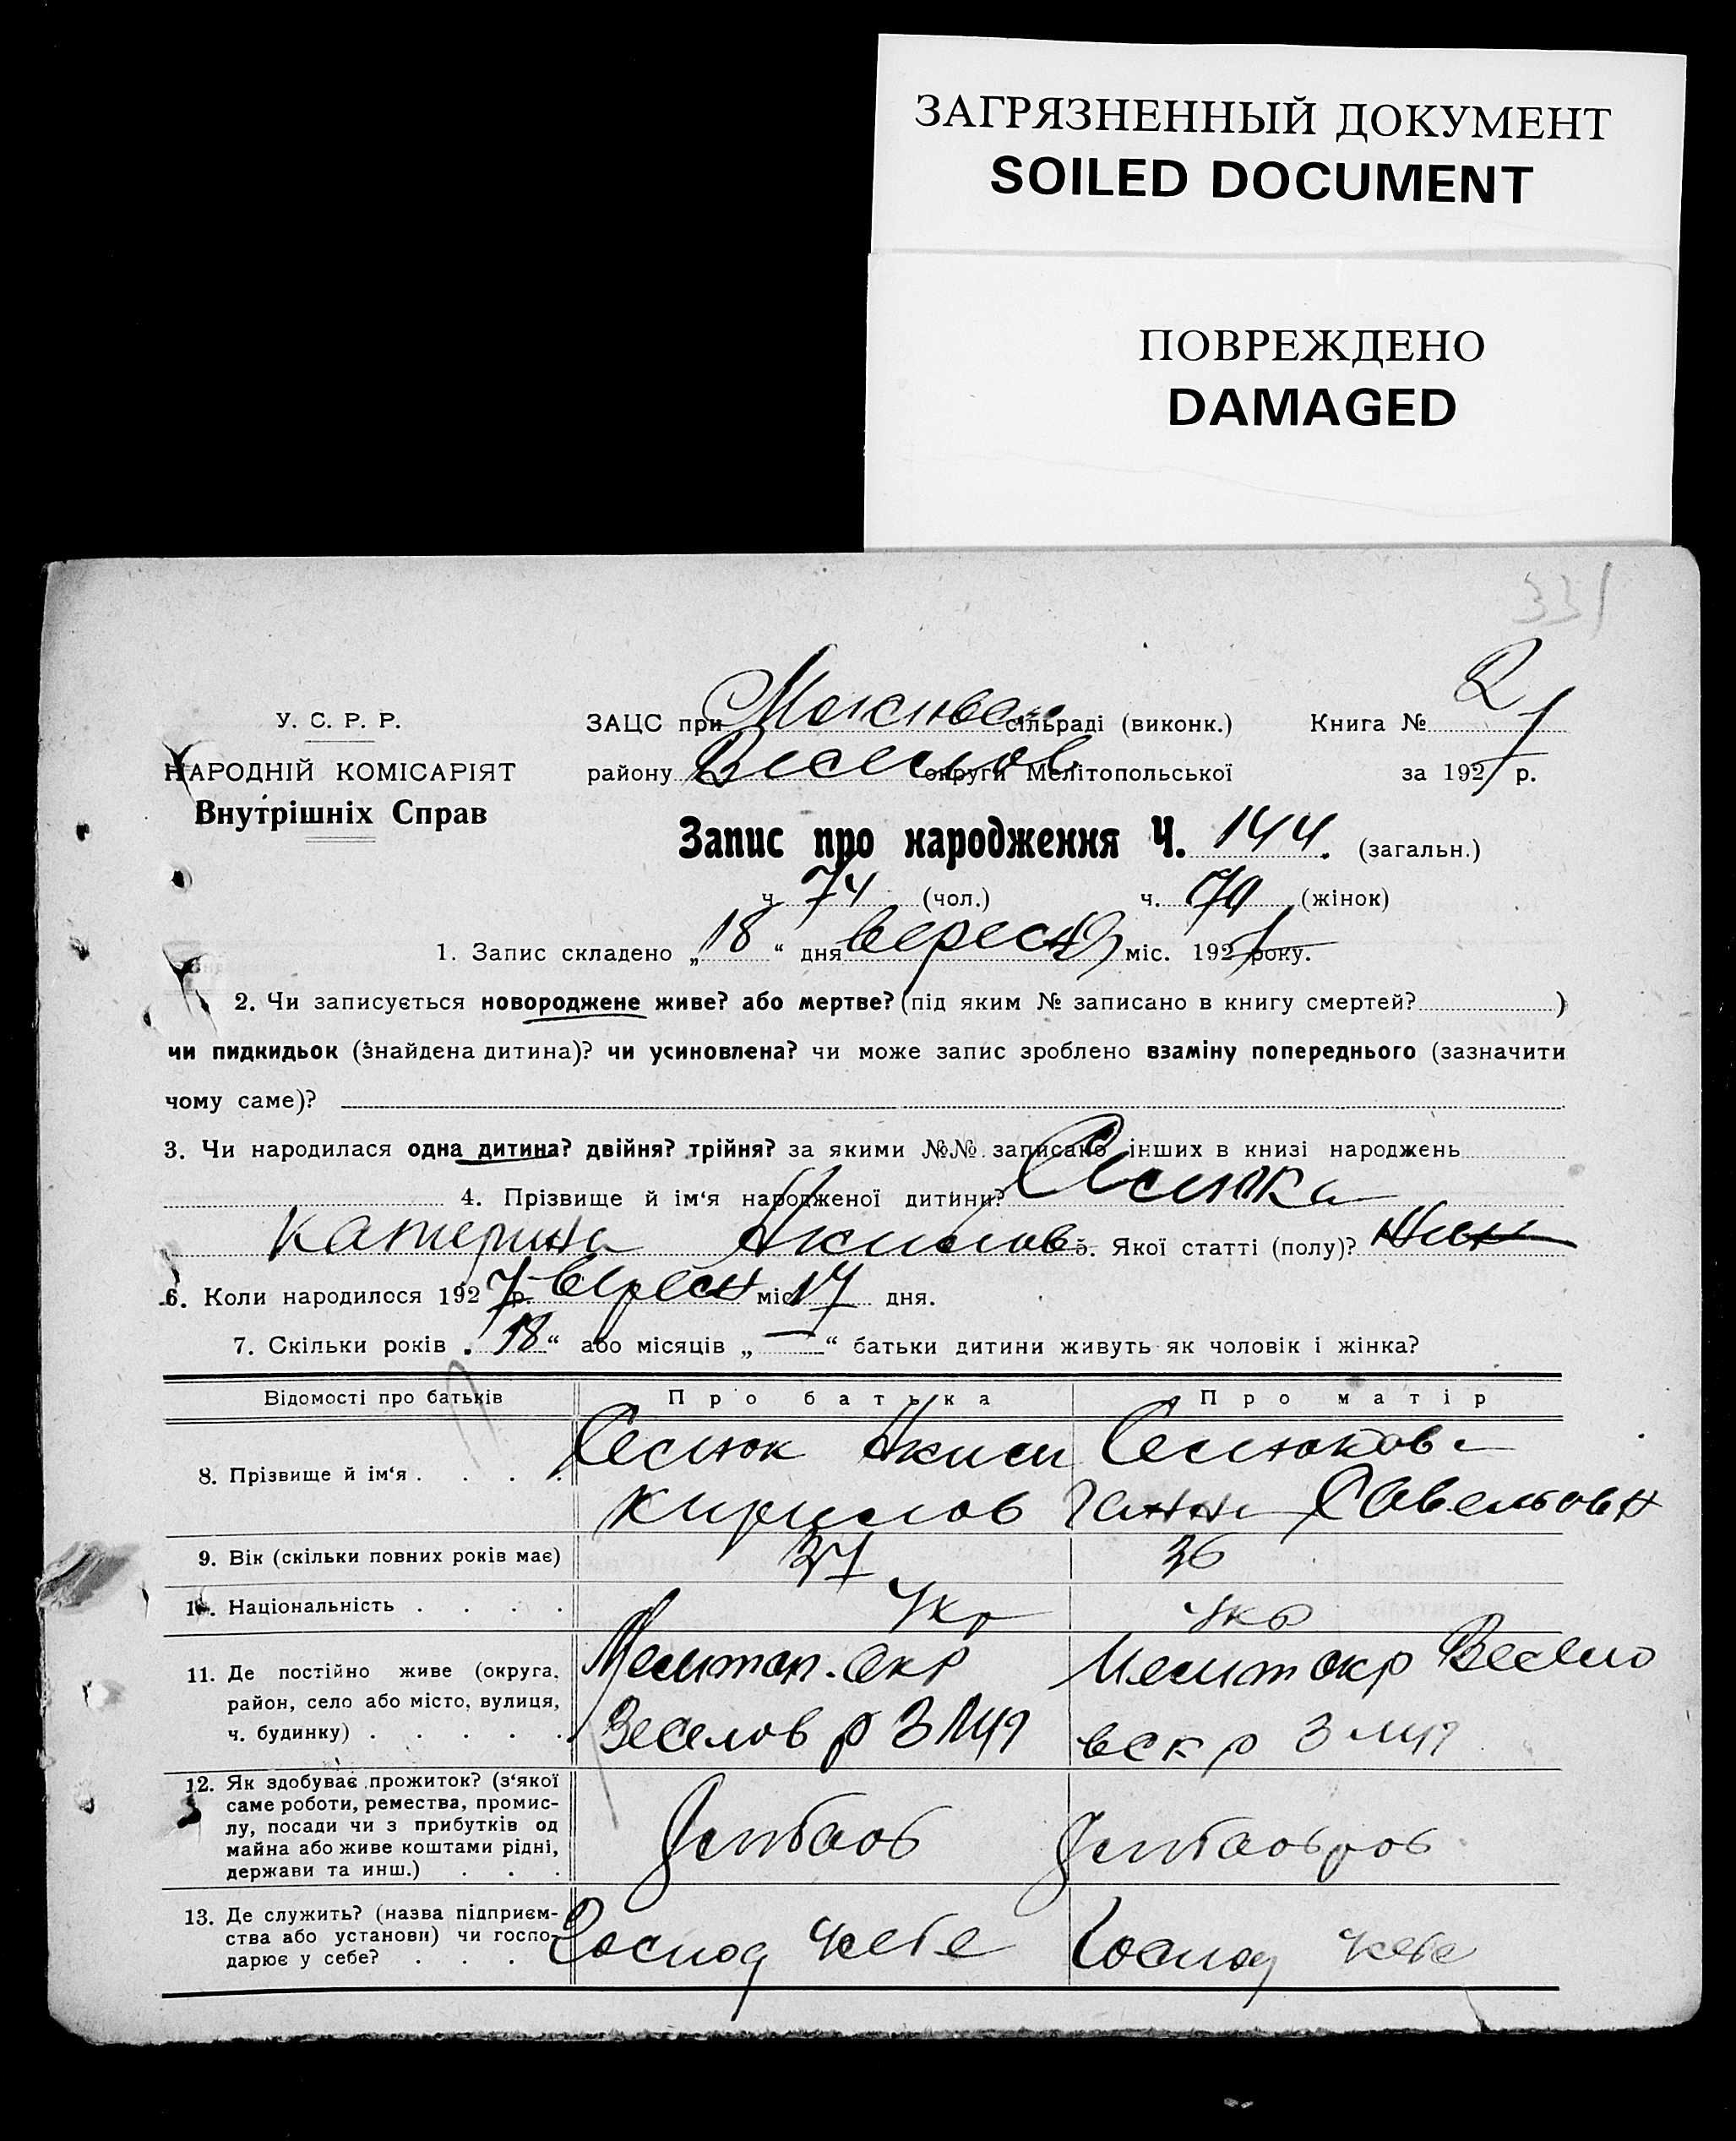 ЗАГРЯЗНЕННЫЙ ДОКУМЕНТ
SOILED DOCUMENT
ПОВРЕЖДЕНО
DAMAGED
331
У. С. Р. Р.
НАРОДНІЙ КОМІСАРІЯТ
Внутрішніх Справ
ЗАЦС при сільраді (виконк.) Книга № 2
району Веселов округи Мелітопольської за 1927 р.
Запис про народження Ч. 144. (загальн.)
ч. 74 (чол.) ч. 70 (жінок)
1. Запис складено „18“ дня вересня міс. 1927 року.
2. Чи записується новороджене живе? або мертве? (під яким № записано в книгу смертей? )
чи пидкидьок (знайдена дитина)? чи усиновлена? чи може запис зроблено взаміну попереднього (зазначити
чому саме)?
3. Чи народилася одна дитина? двійня? трійня? за якими №№ записано інших в книзі народжень
4. Прізвище й ім‘я народженої дитини?
Катерина Акимов 5. Якої статті (полу)? жін
6. Коли народилося 1927 р. вересн міс 17 дня.
7. Скільки років „18“ або місяців „—“ батьки дитини живуть як чоловік і жінка?
Відомості про батьків Про батька Про матір
8. Прізвище й ім‘я . . . . Аким
Кирилов Ганна Савельовн
9. Вік (скільки повних років має) 37 36
10. Національність . . . . Укр Укр
11. Де постійно живе (округа, Мелитоп. окр Мелит окр Весело
район, село або місто, вулиця, Веселов р
ч. будинку) . . . . .
12. Як здобуває прожиток? (з‘якої
саме роботи, ремества, промис-
лу, посади чи з прибутків од
майна або живе коштами рідні,
держави та инш.) . . .
13. Де служить? (назва підприєм-
ства або установи) чи госпо- Господ у себе Господ у себе
дарює у себе? . . .